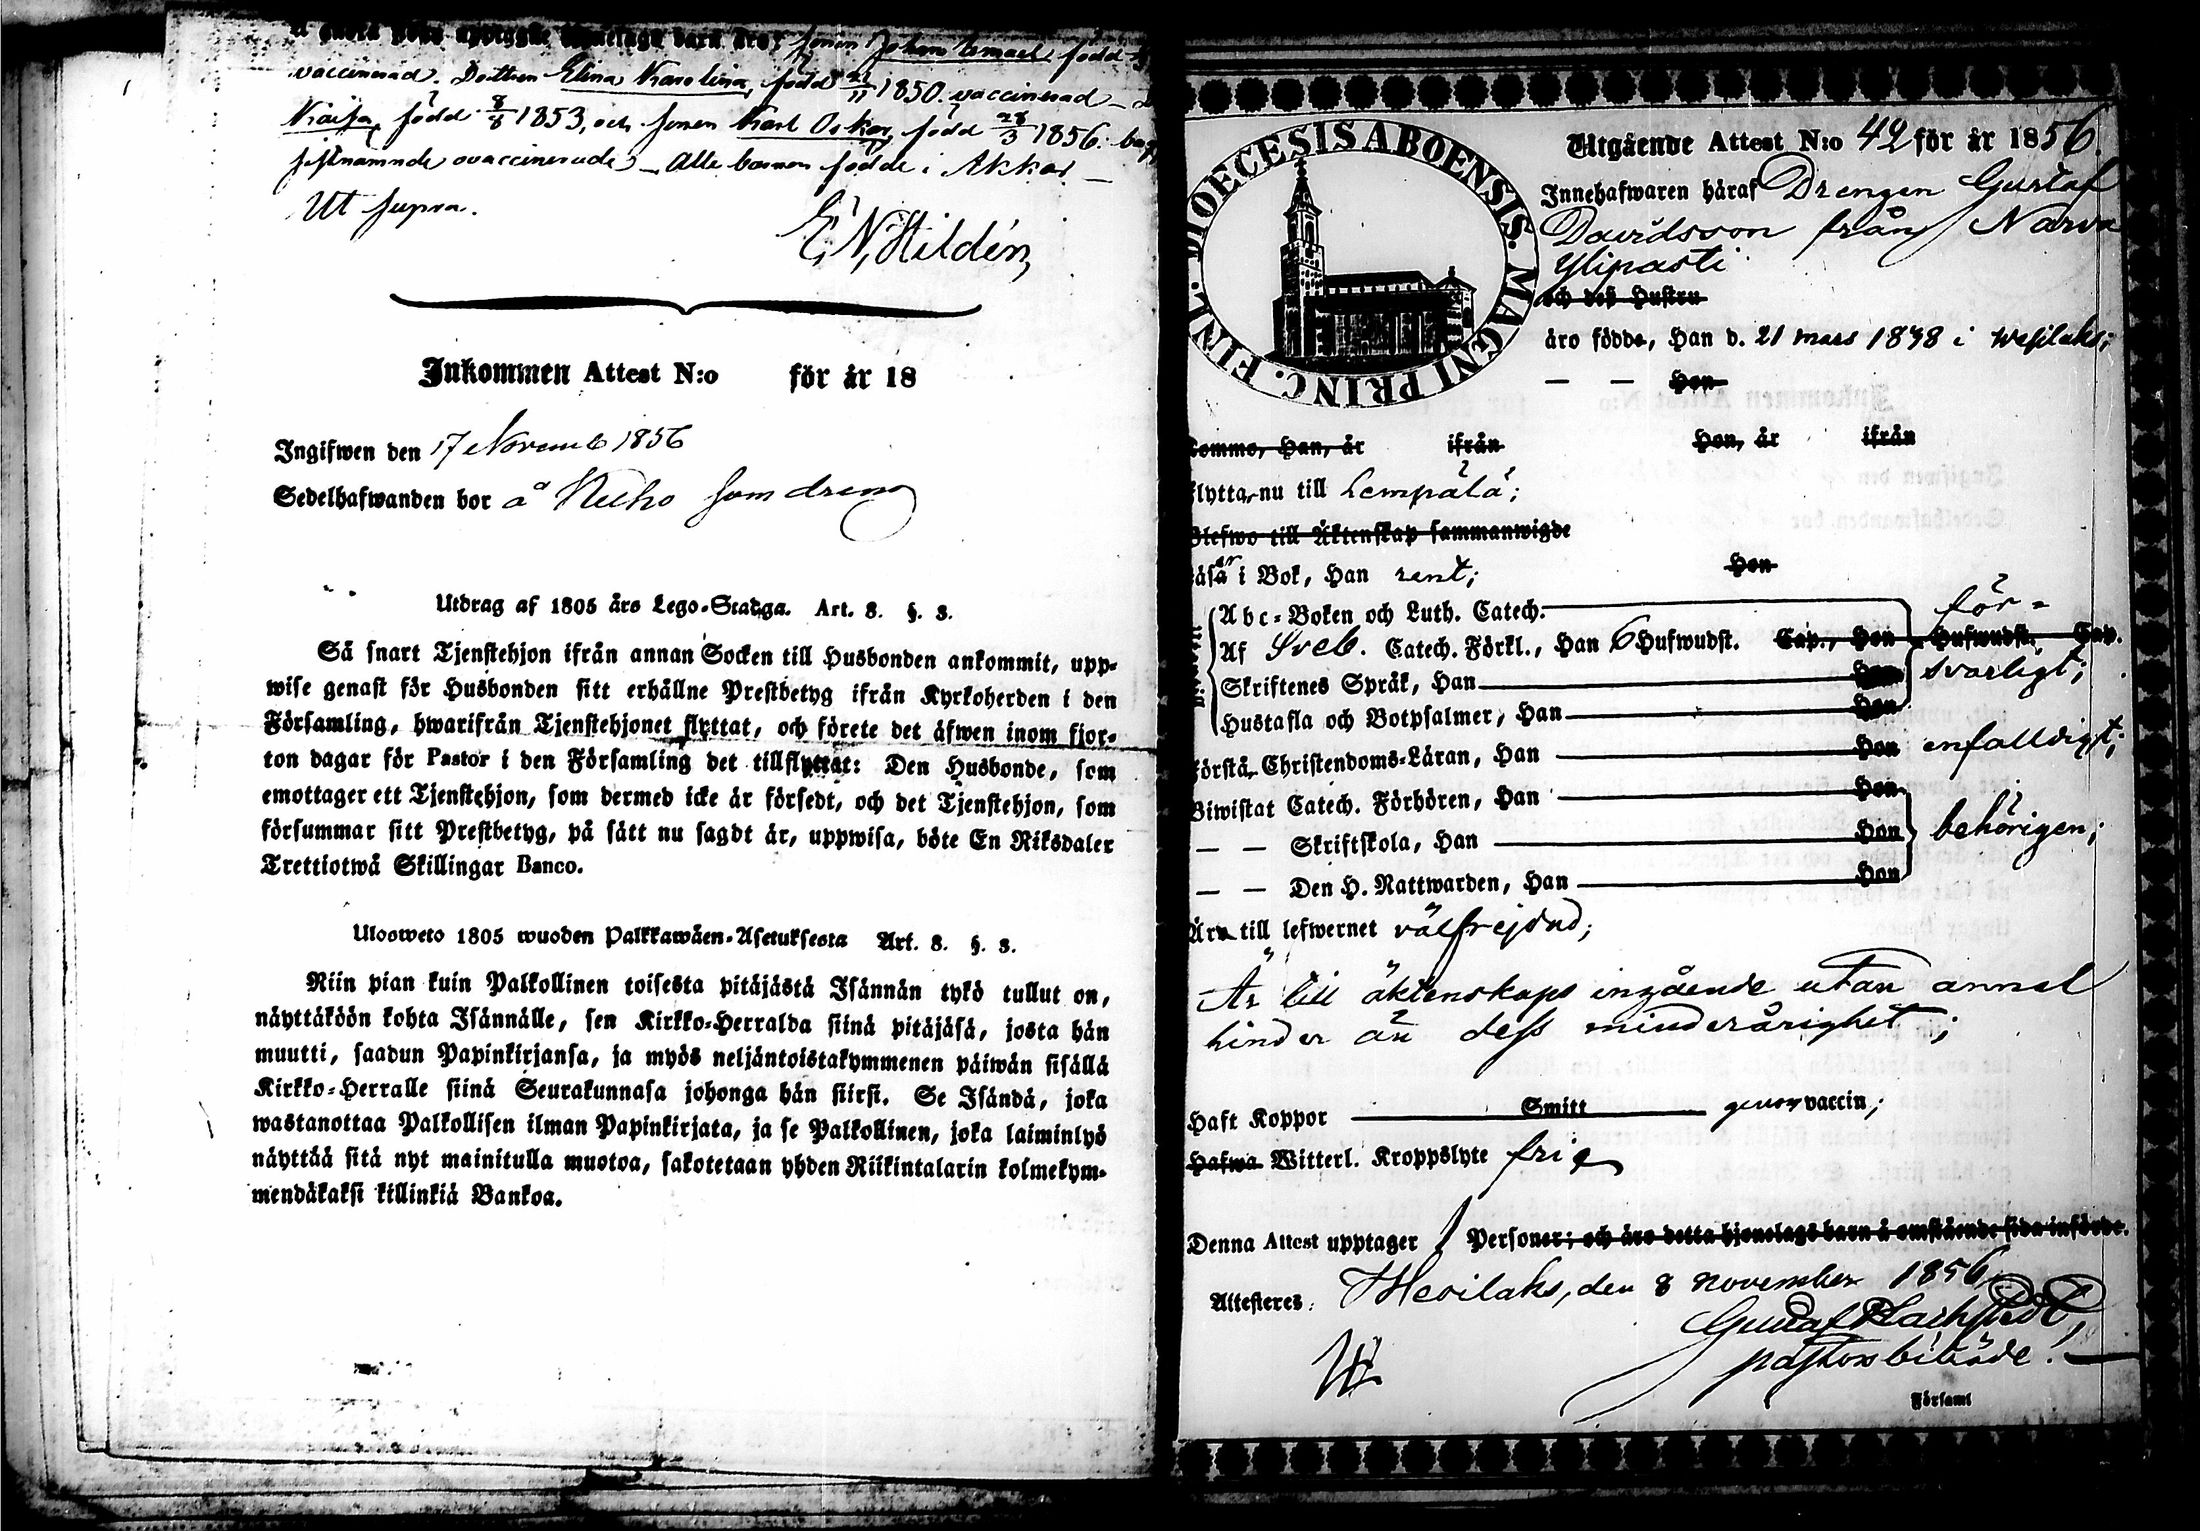 vaccinerad. Dottren Elena Karolina, född 21/11 1850. vaccinerad –
Kaisa, född 8/8 1853, och sonen Karl Oskar, född 28/3 1856.
sistnämnde ovaccinerade – Alle barnen födde i Akkas –
Ut supra.
E. N. Hildén,
Inkommen Attest N:o för år 18
Ingifwen den 17 Novemb 1856
Sedelhafwanden bor å Kuho som dreng
Utdrag af 1805 års Lego-Stadga. Art. 8. §. 3.
Så snart Tjenstehjon ifrån annan Socken till Husbonden ankommit, upp-
wise genast för Husbonden sitt erhållne Prestbetyg ifrån Kyrkoherden i den
Församling, hwarifrån Tjenstehjonet flyttat, och förete det äfwen inom fjor-
ton dagar för Pastor i den Församling det tillflyttat: Den Husbonde, som
emottager ett Tjenstehjon, som dermed icke är försedt, och det Tjenstehjon, som
försummar sitt Prestbetyg, på sätt nu sagdt är, uppwisa, böte En Riksdaler
Trettiotwå Skillingar Banco.
Ulosweto 1805 wuoden Palkkawäen-Asetuksesta Art. 8. §. 3.
Niin pian kuin Palkollinen toisesta pitäjästä Isännän tykö tullut on,
näyttäköön kohta Isännälle, sen Kirkko-Herralda siinä pitäjäsä, josta hän
muutti, saadun Papinkirjansa, ja myös neljäntoistakymmenen päiwän sisällä
Kirkko-Herralle siinä Seurakunnasa johonga hän siirsi. Se Isändä, joka
wastanottaa Palkollisen ilman Papinkirjata, ja se Palkollinen, joka laiminlyö
näyttää sitä nyt mainitulla muotoa, sakotetaan yhden Riikintalarin kolmekym-
mendäkaksi killinkiä Bankoa.
DIOECESIS ABOENSIS. MAGNI PRINC. FINL.
Utgående Attest N:o 42 för år 1856
Innehafwaren häraf Drengen Gustaf
Davidsson från Narva
Ylipasti
och deß Hustru
äro födde, Han d. 21 mars 1838 i Wesilaks;
– – Hon
kommo, Han, år ifrån Hon, år ifrån
flytta nu till Lempälä;
Blefwo till Äktenskap sammanwigde
Läsa i Bok, Han rent; Hon
Abc-Boken och Luth. Catech. för-
Af Sveb. Catech. Förkl., Han 6 Hufwudst. Cap., Hon Hufwudst. Cap.
Skriftenes Språk, Han Hon svarligt;
Hustafla och Botpsalmer, Han Hon
Förstå Christendoms-Läran, Han Hon enfalldigt;
Biwistat Catech. Förhören, Han Hon
– – Skriftskola, Han Hon behörigen;
– – Den H. Nattwarden, Han Hon
Äro till lefwernet välfrejdad;
Är till äktenskaps ingående utan annat
hinder än dess minderårighet;
Haft Koppor Smitt genom vaccin;
Hafwa Witterl. Kroppslyte fri
Denna Attest upptager 1 Personer; och äro detta hjonelags barn å omstående sida införde.
Attesteres: Wesilaks, den 8 november 1856.
pastorsbiträde.
Församl